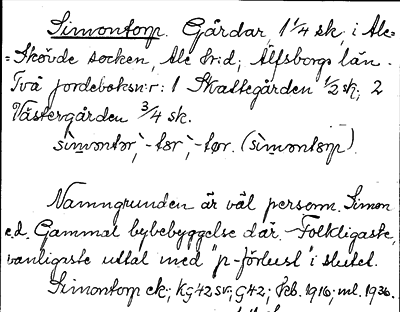 Simontorp. Gårdar 1 1/4 sk, i Ale=
=Skövde socken, Ale h:d; Älfsborgs län.
Två jordeboksn:r: 1 Skattegården 1/2 sk; 2
Västergården 3/4 sk.
sìmontər; -tər; -tør. (sìmontərp).
Namngrunden är väl personn. Simon
e.d. Gammal bybebyggelse där. - Folkligaste,
vanligaste uttal med "p-förlust" i slutet.
Simontorp ek; KG42SV; G42; feb. 1916; ml. 1936.